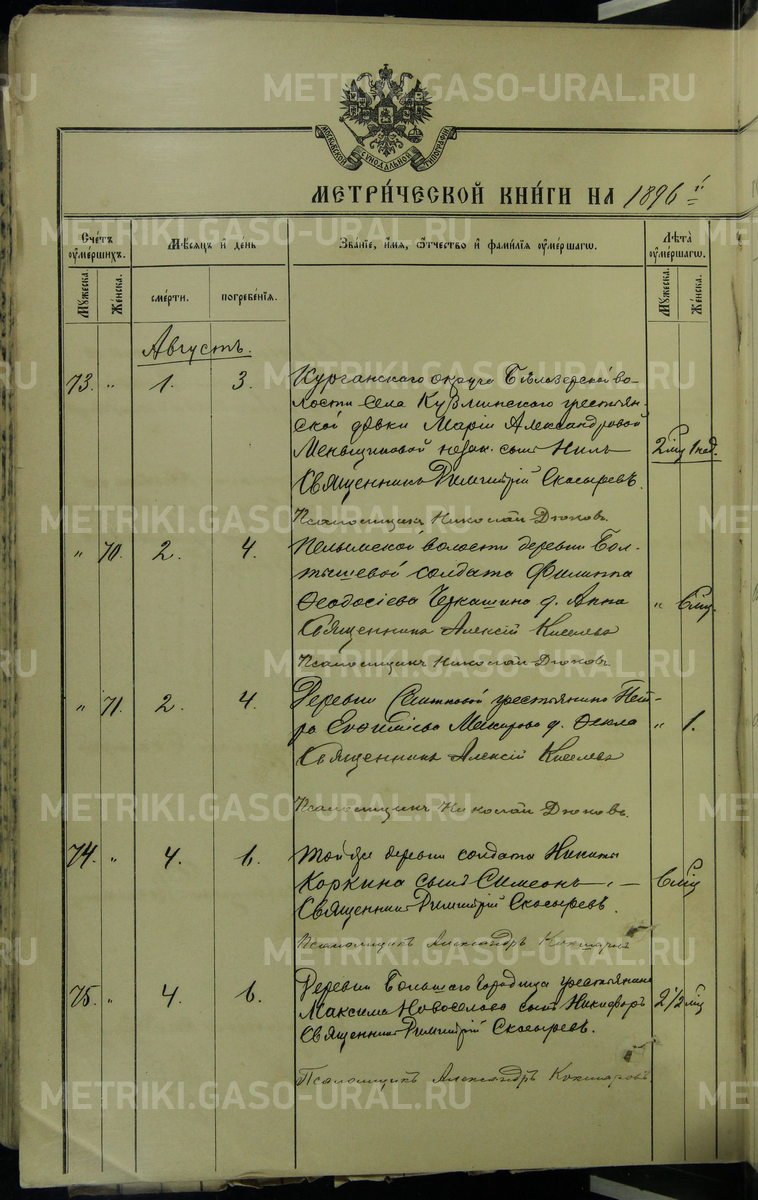 МОСКОВСКОЙ СУНОДАЛЬНОЙ ТИПОГРАФІИ
МЕТРИ́ЧЕСКОЙ КНИ́ГИ НА 1896 й
Сче́тъ оуме́ршихъ.
Мѣ́сѧцъ и де́нь
Зва́нїе, и́мѧ, ѻ҆́тчество и фами́лїѧ оуме́ршагѡ.
Лѣ́та оуме́ршагѡ.
Му́жеска.
Же́нска.
сме́рти.
погребе́нїѧ.
Му́жеска.
Же́нска.
Августъ.
73. " 1. 3. Курганскаго округа Бѣлозерской во-
лости села Кузьминскаго крестьян-
ской дѣвки Маріи Александровой
Меньщиковой незак. сынъ Нилъ 2 мѣс 1 нед.
Священникъ Димитрій Скосыревъ.
Псаломщикъ Николай Дюковъ.
" 70. 2. 4. Пелымской волости деревни Бол-
тышевой солдата Филиппа
Ѳеодосіева Черкашина д. Анна " 6 мѣс.
Священникъ Алексій Киселевъ
Псаломщикъ Николай Дюковъ.
" 71. 2. 4. Деревни крестьянина Пет-
ра Евѳиміева Макарова д. Ѳекла " 1.
Священникъ Алексій Киселевъ
Псаломщикъ Николай Дюковъ.
74. " 4. 6. Той же деревни солдата Никиты
Коркина сынъ Симеонъ. — 6 мѣс
Священникъ Димитрій Скосыревъ.
Псаломщикъ Александръ Кокшаровъ
75. " 4. 6. Деревни Большаго Городища крестьянина
Максима Новоселова сынъ Никифоръ 2 1/2 мѣс
Священникъ Димитрій Скосыревъ.
Псаломщикъ Александръ Кокшаровъ
METRIKI.GASO-URAL.RU